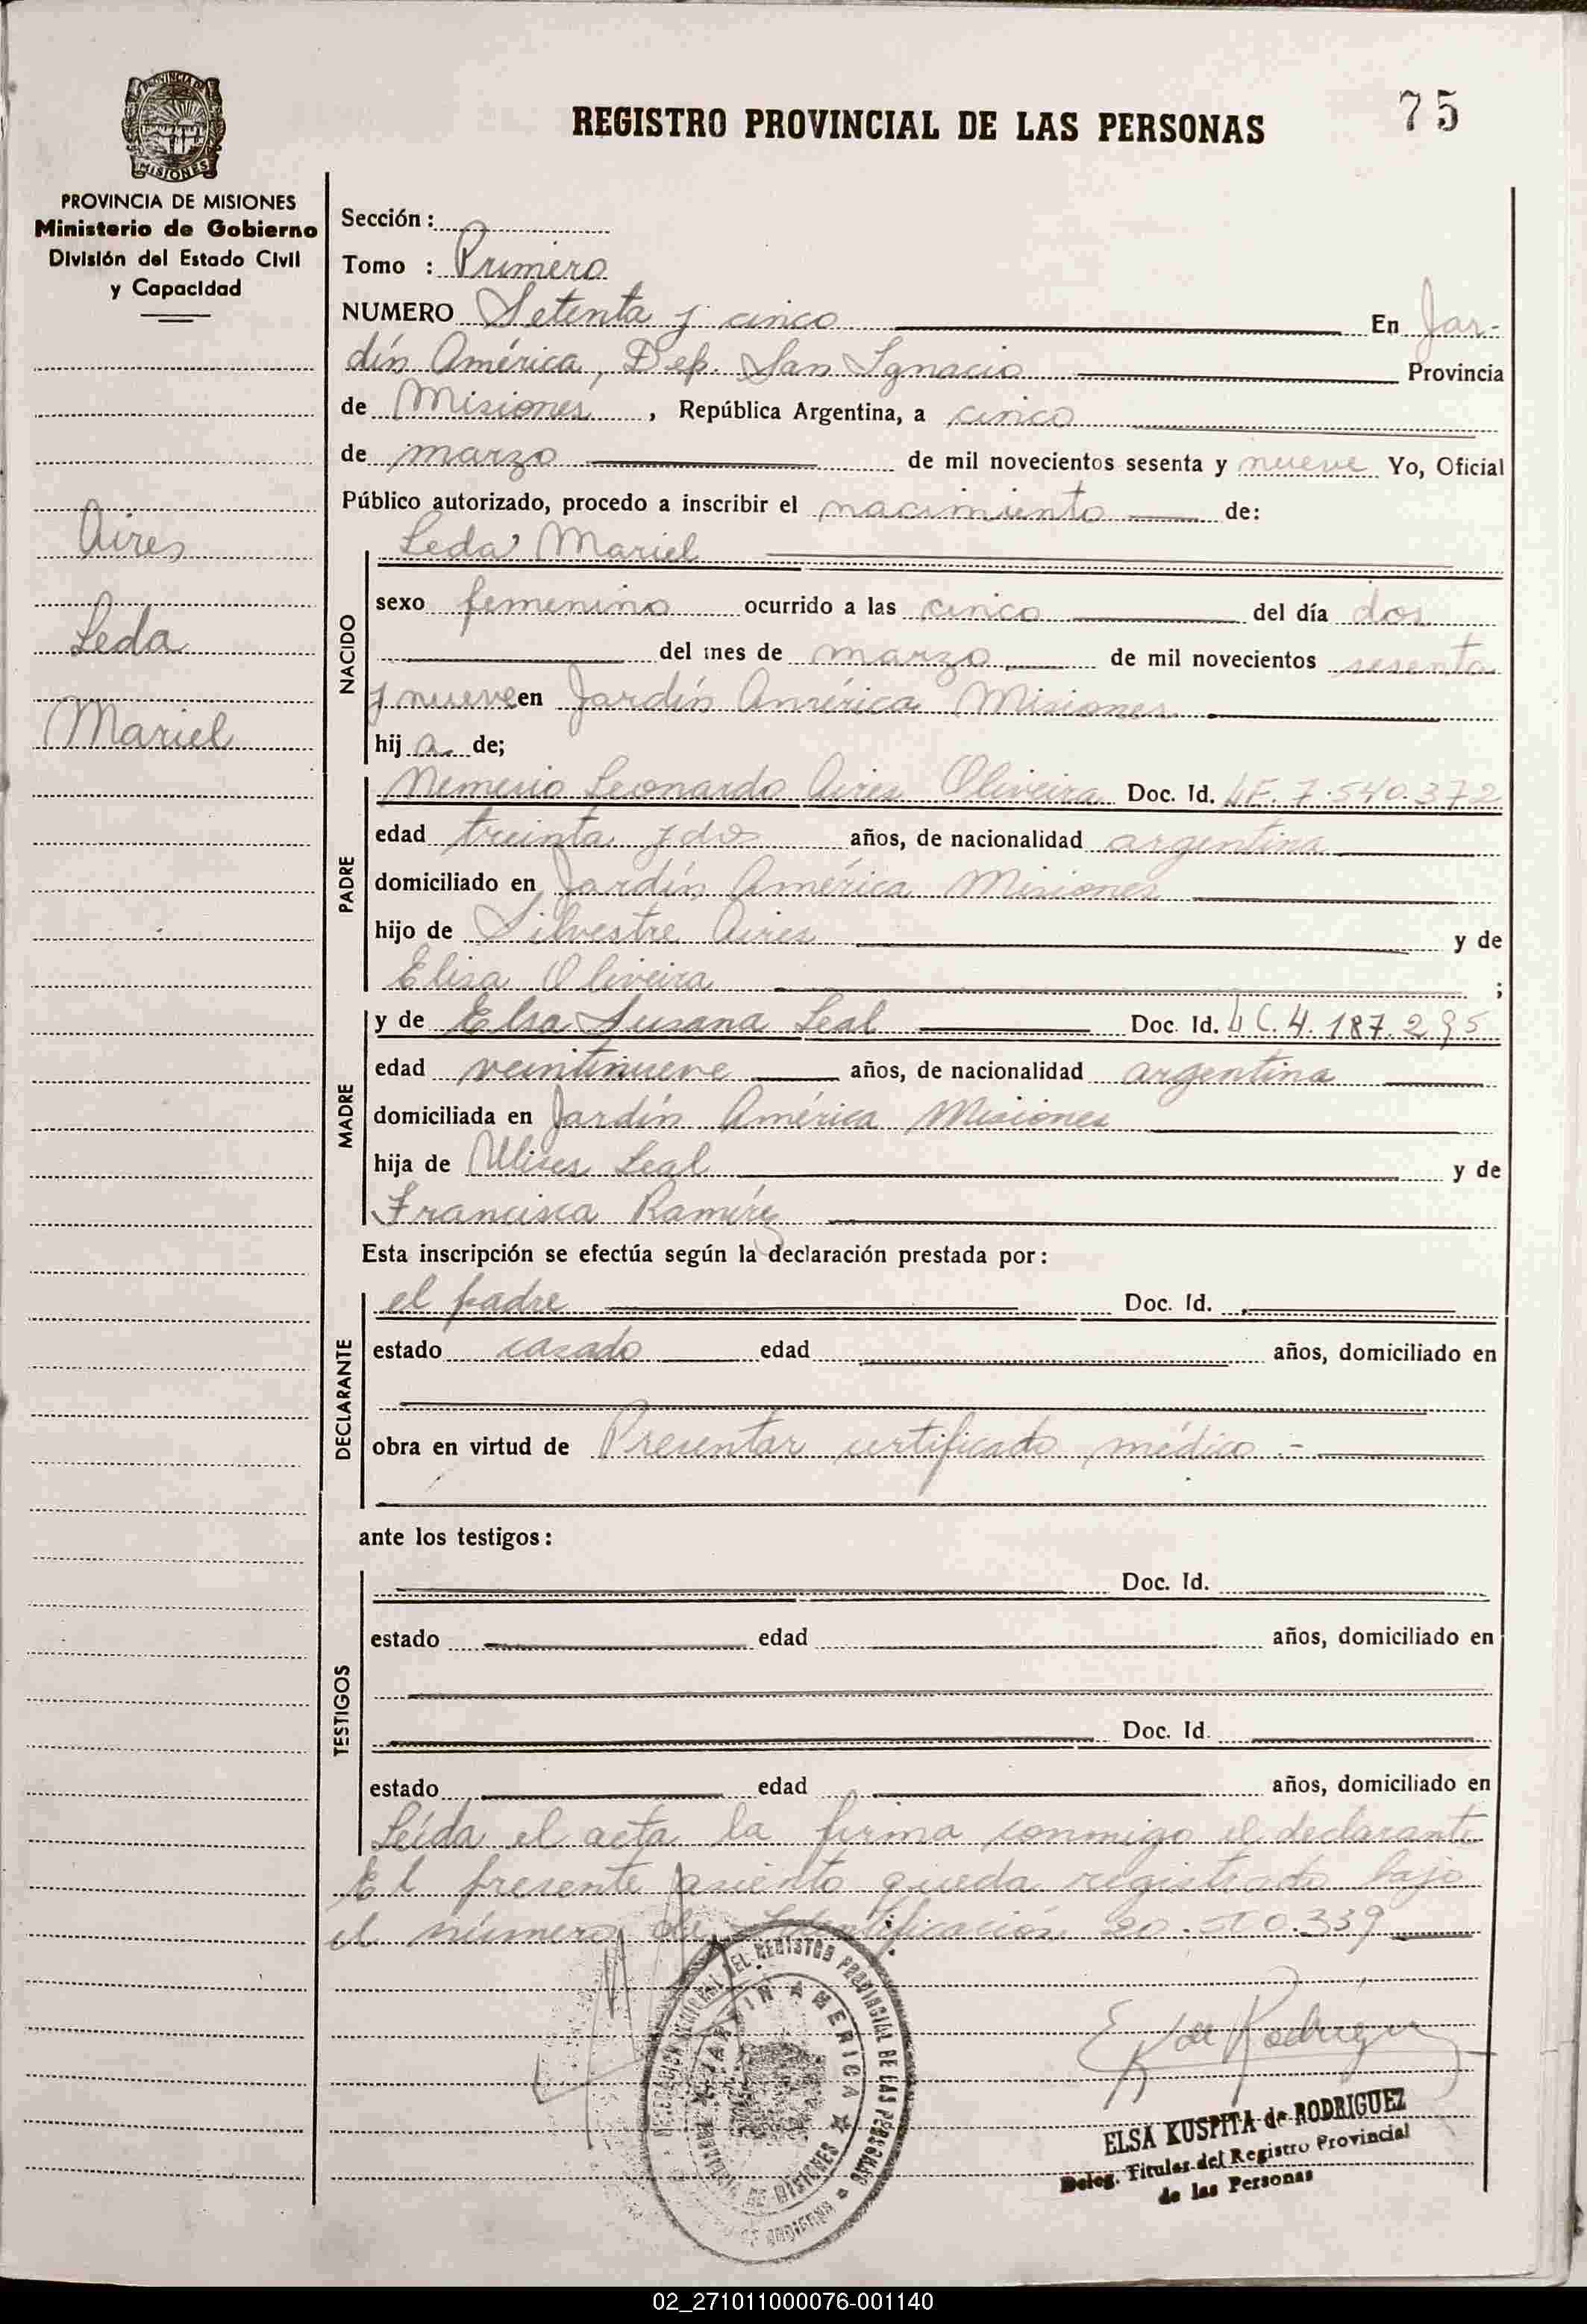 75
REGISTRO PROVINCIAL DE LAS PERSONAS
MISIONES
PROVINCIA DE MISIONES
Ministerio de Gobierno
División del Estado Civil
y Capacidad
Aires
Leda
Mariel
Sección:
Tomo : Primero
NUMERO Setenta y cinco En Jar-
dín América, Dep. San Ignacio Provincia
de Misiones, República Argentina, a cinco
de marzo de mil novecientos sesenta y nueve Yo, Oficial
Público autorizado, procedo a inscribir el nacimiento de:
Leda Mariel
NACIDO
sexo femenino ocurrido a las cinco del día dos
del mes de marzo de mil novecientos sesenta
y nueve en Jardín América Misiones
hij a de;
PADRE
Nemesio Leonardo Aires Oliveira Doc. Id. LE. 7.540.372
edad treinta y dos años, de nacionalidad argentina
domiciliado en Jardín América Misiones
hijo de Silvestre Aires y de
Elisa Oliveira ;
MADRE
y de Elsa Susana Leal Doc. Id. LC. 4.187.295
edad veintinueve años, de nacionalidad argentina
domiciliada en Jardín América Misiones
hija de Ulises Leal y de
Francisca Ramírez
Esta inscripción se efectúa según la declaración prestada por:
DECLARANTE
el padre Doc. Id.
estado casado edad años, domiciliado en
obra en virtud de Presentar certificado médico.-
ante los testigos:
TESTIGOS
Doc. Id.
estado edad años, domiciliado en
Doc. Id.
estado edad años, domiciliado en
Leída el acta la firma conmigo el declarante
El presente asiento queda registrado bajo
el número de Identificación 20.510.339
DEL REGISTRO PROVINCIAL DE LAS PERSONAS
JARDIN AMERICA
PROVINCIA DE MISIONES
E K de Rodriguez
ELSA KUSPITA de RODRIGUEZ
Deleg. Titular del Registro Provincial
de las Personas
02_271011000076-001140